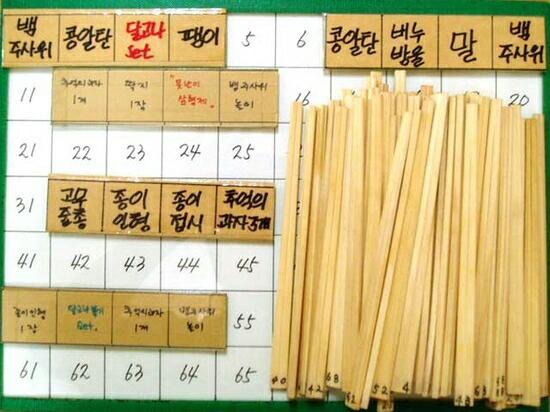 뱀 주사위
콩알탄
달고나 Set
팽이
5
6
콩알탄
말
뱀 주사위
11
추억의과자 1개
딱지 1장
"못난이 삼형제"
뱀주사위 놀이
16
20
21
22
23
24
25
31
고무 줄총
종이 인형
종이 접시
추억의 과자 5개
41
42
43
44
45
종이인형 1장
달고나뽑기 Set.
추억의과자 1개
뱀주사위 놀이
55
61
62
63
64
65
42
68
52